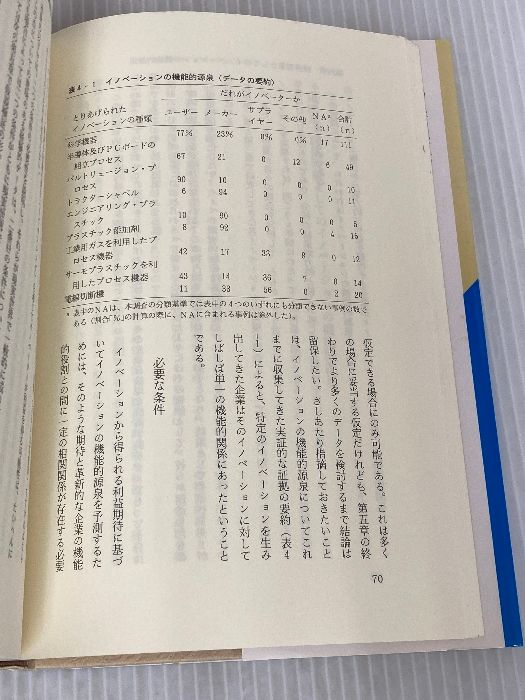 表4-1 イノベーションの機能的源泉（データの要約）
だれがイノベーターか
とりあげられた
イノベーションの種類 ユーザー メーカー サプライヤー その他 NAᵃ(n) 合計(n)
科学機器 77% 23% 0% 0% 17 111
半導体及びPCボードの
組立プロセス 67 21 0 12 6 49
パルトリュージョン・プ
ロセス 90 10 0 0 0 10
トラクターシャベル 6 94 0 0 0
エンジニアリング・プラ
スチック 10 90 0 0 0 5
プラスチック添加剤 8 92 0 0 4 16
工業用ガスを利用したプ
ロセス機器 42 17 33 8 0 12
サーモプラスチックを利
用したプロセス機器 43 14 36 7 0 14
電線切断機 11 33 56 0 2 20
ᵃ 表中のNAは、本調査の分類基準では表中の4つのいずれにも分類できない事例の数で
ある（割合「%」の計算の際に、NAに含まれる事例は除外した）。
仮定できる場合にのみ可能である。これは多く
の場合に妥当する仮定だけれども、第五章の終
わりでより多くのデータを検討するまで結論は
留保したい。さしあたり指摘しておきたいこと
は、イノベーションの機能的源泉についてこれ
までに収集してきた実証的な証拠の要約（表4
-1）によると、特定のイノベーションを生み
出してきた企業はそのイノベーションに対して
しばしば単一の機能的関係にあったということ
である。
必要な条件
イノベーションから得られる利益期待に基づ
いてイノベーションの機能的源泉を予測するた
めには、そのような期待と革新的な企業の機能
的役割との間に一定の相関関係が存在する必要
70